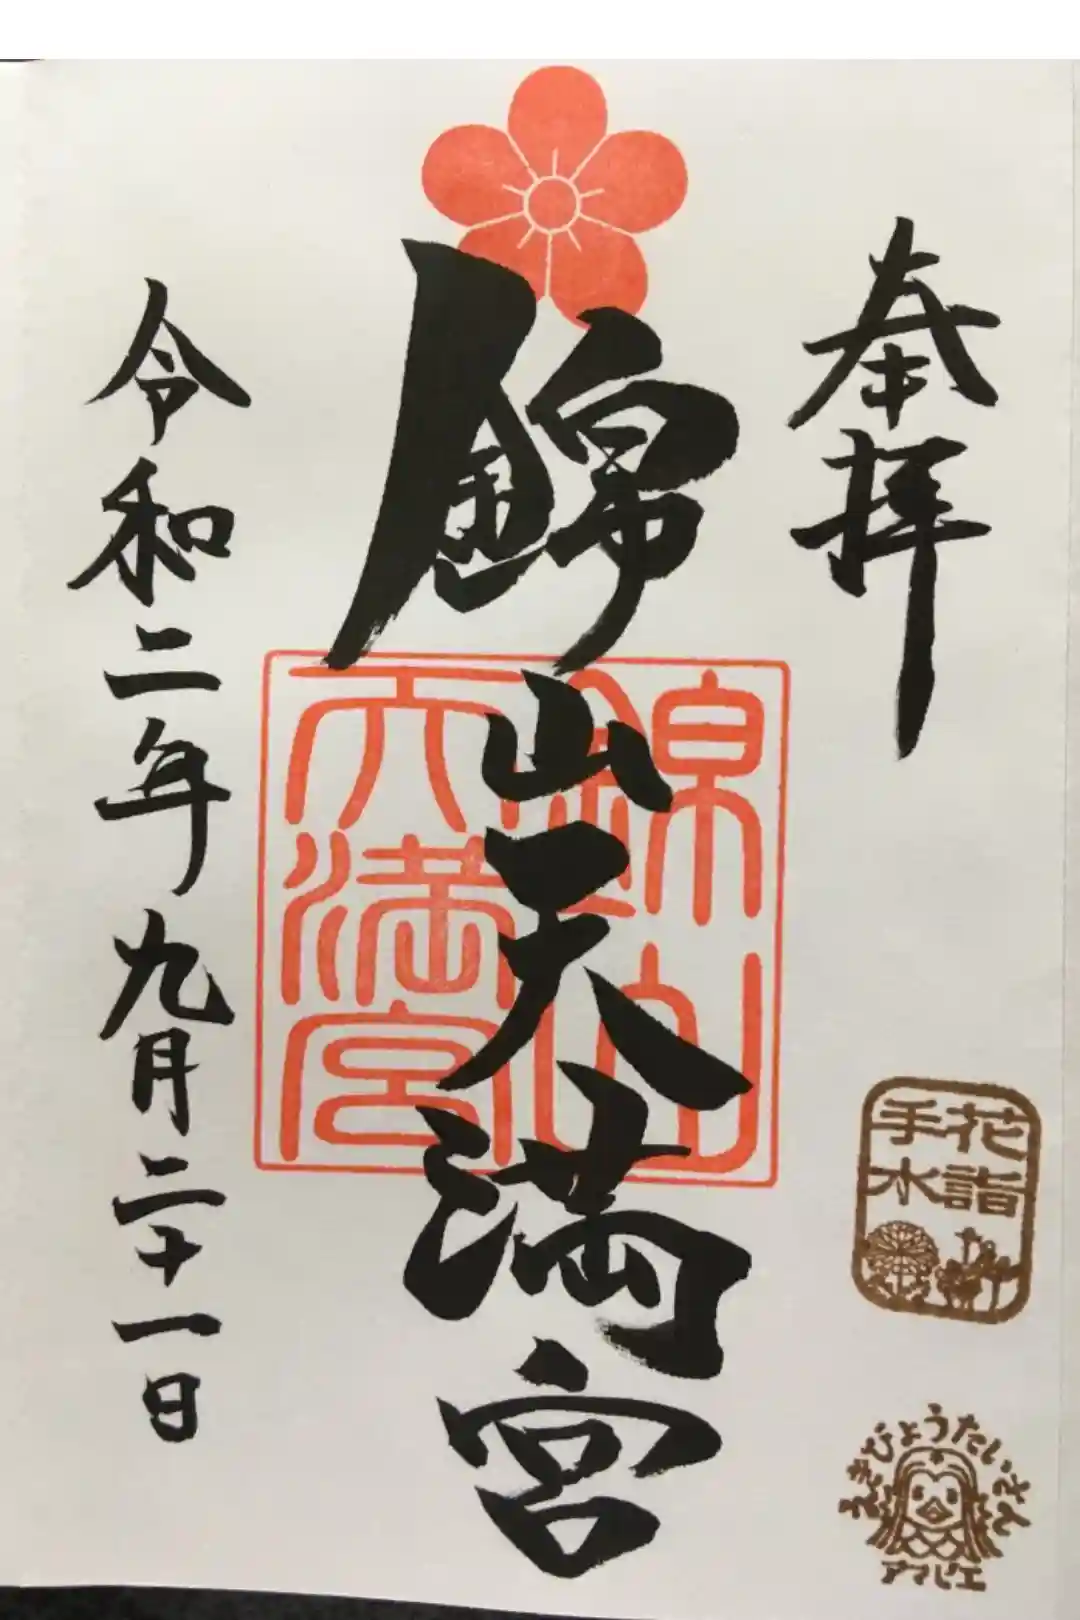 奉拝
錦山天満宮
錦山
天満宮
令和二年九月二十一日
花詣
手水
えきびょうたいさん
アマビエ